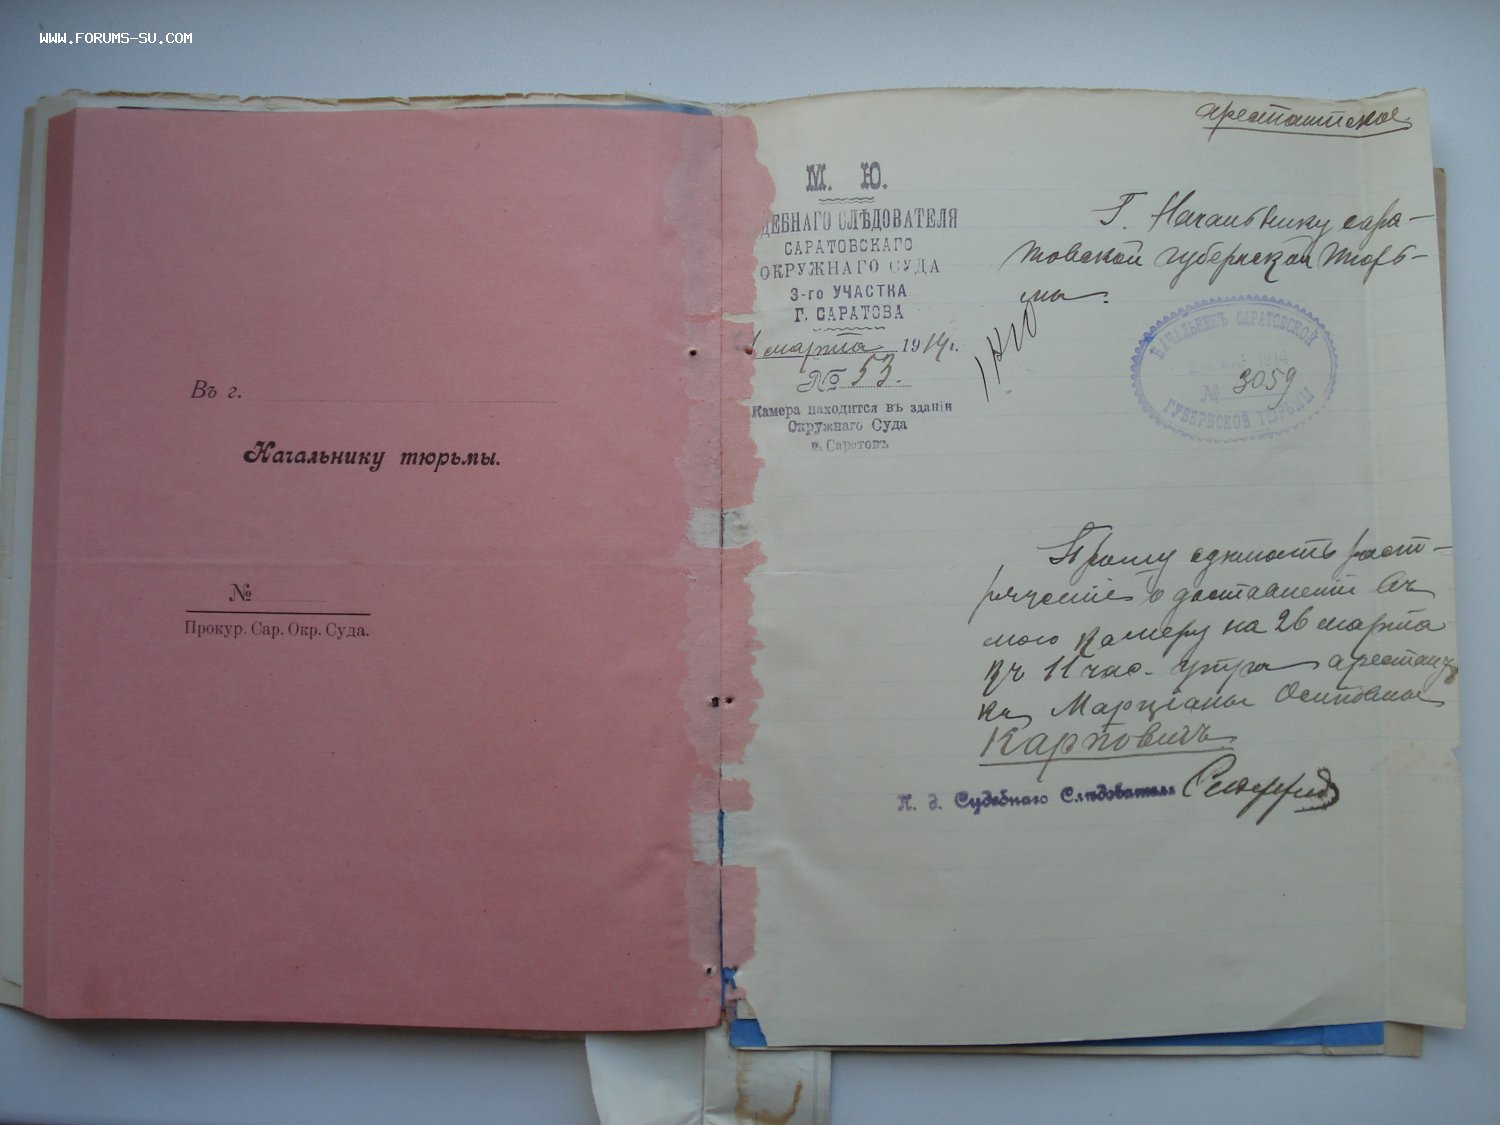 WWW.FORUMS-SU.COM
Въ г.
Начальнику тюрьмы.
№
Прокур. Сар. Окр. Суда.
арестантское.
М. Ю.
ДЕБНАГО СЛѢДОВАТЕЛЯ
САРАТОВСКАГО
ОКРУЖНАГО СУДА
3-го УЧАСТКА
Г. САРАТОВА
марта 1914 г.
№ 53.
Камера находится въ зданіи
Окружнаго Суда
в. Саратовъ
Г. Начальнику Сара-
товской губернской тюрь-
мы.
НАЧАЛЬНИКЪ САРАТОВСКОЙ
1914
№ 3059
ГУБЕРНСКОЙ ТЮРЬМЫ
Прошу сдѣлать расп-
ряженіе о доставленіи въ
мою камеру на 26 марта
къ 11 час. утра арестант
ки Марціаны Осиповны
Карповичъ
И. д. Судебнаго Слѣдователя